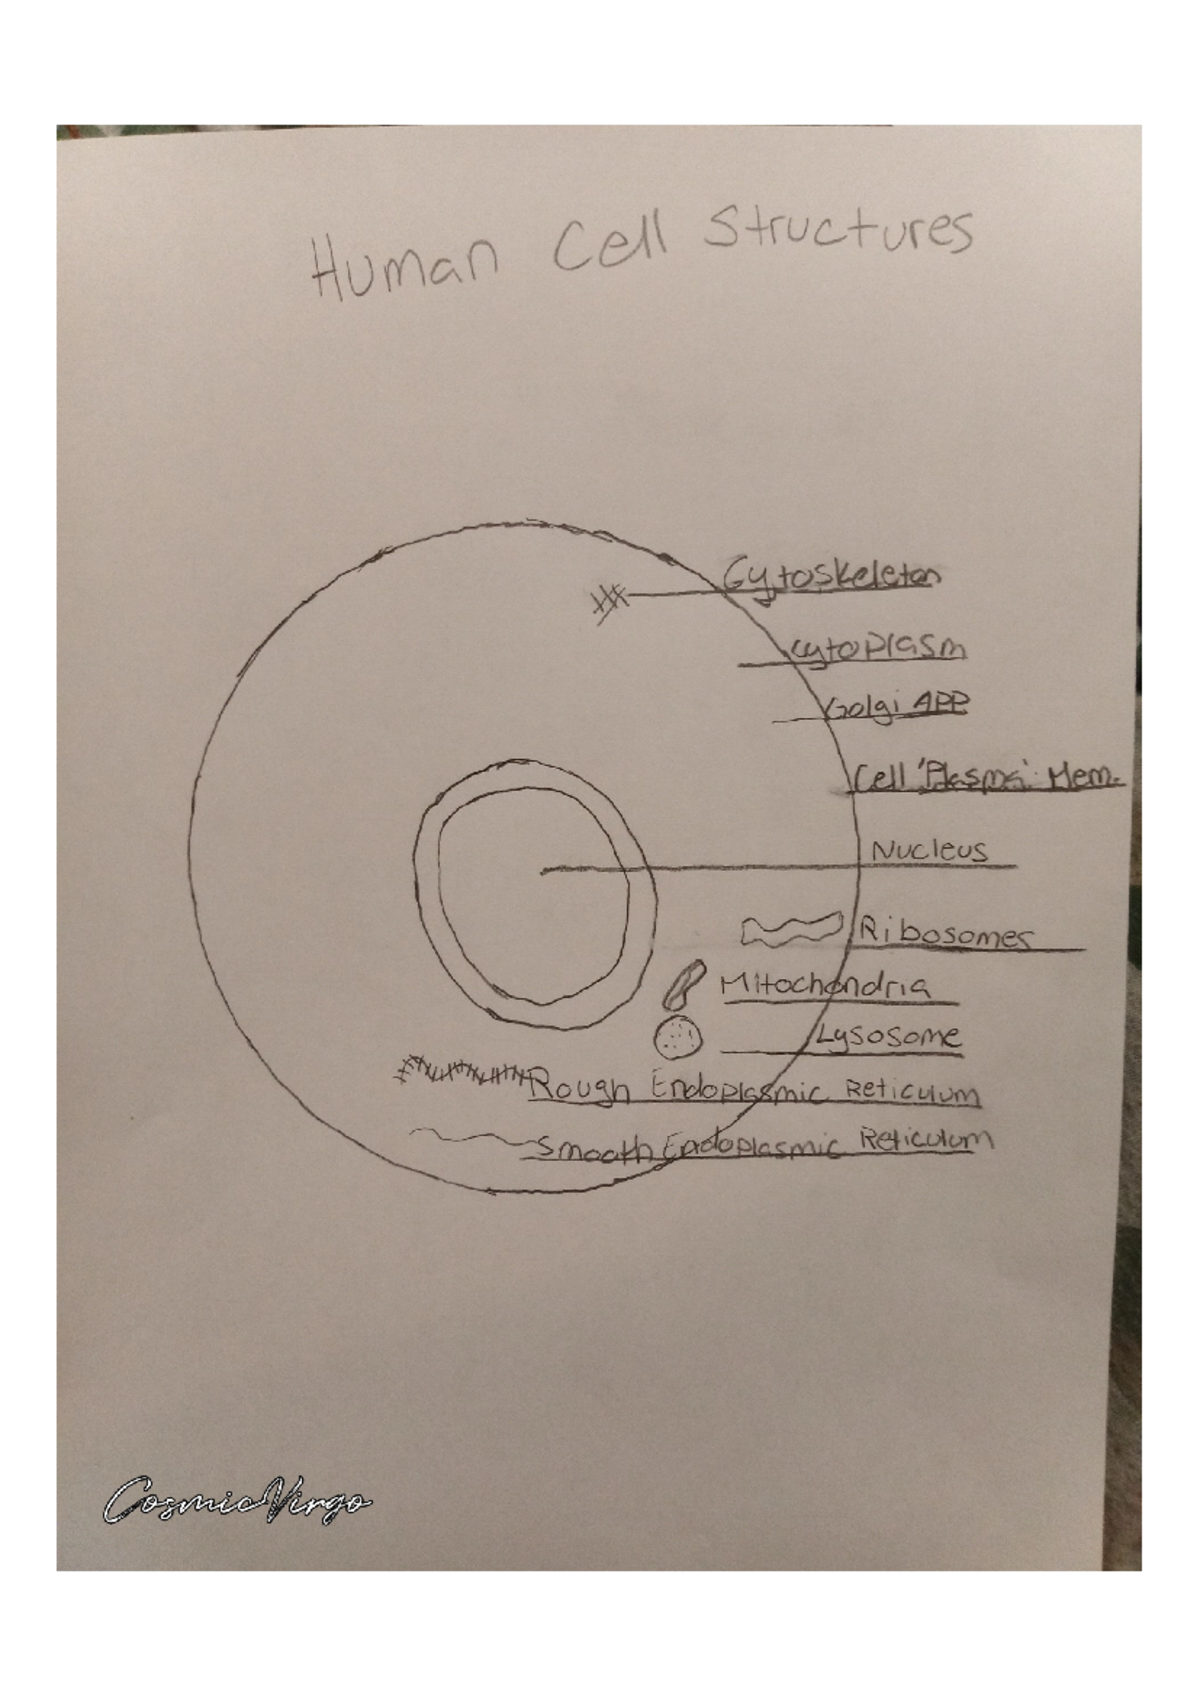 Human Cell Structures
Cytoskeleton
Cytoplasm
Golgi APP
Cell 'Plasma' Mem.
Nucleus
Ribosomes
Mitochondria
Lysosome
Rough Endoplasmic Reticulum
Smooth Endoplasmic Reticulum
CosmicVirgo